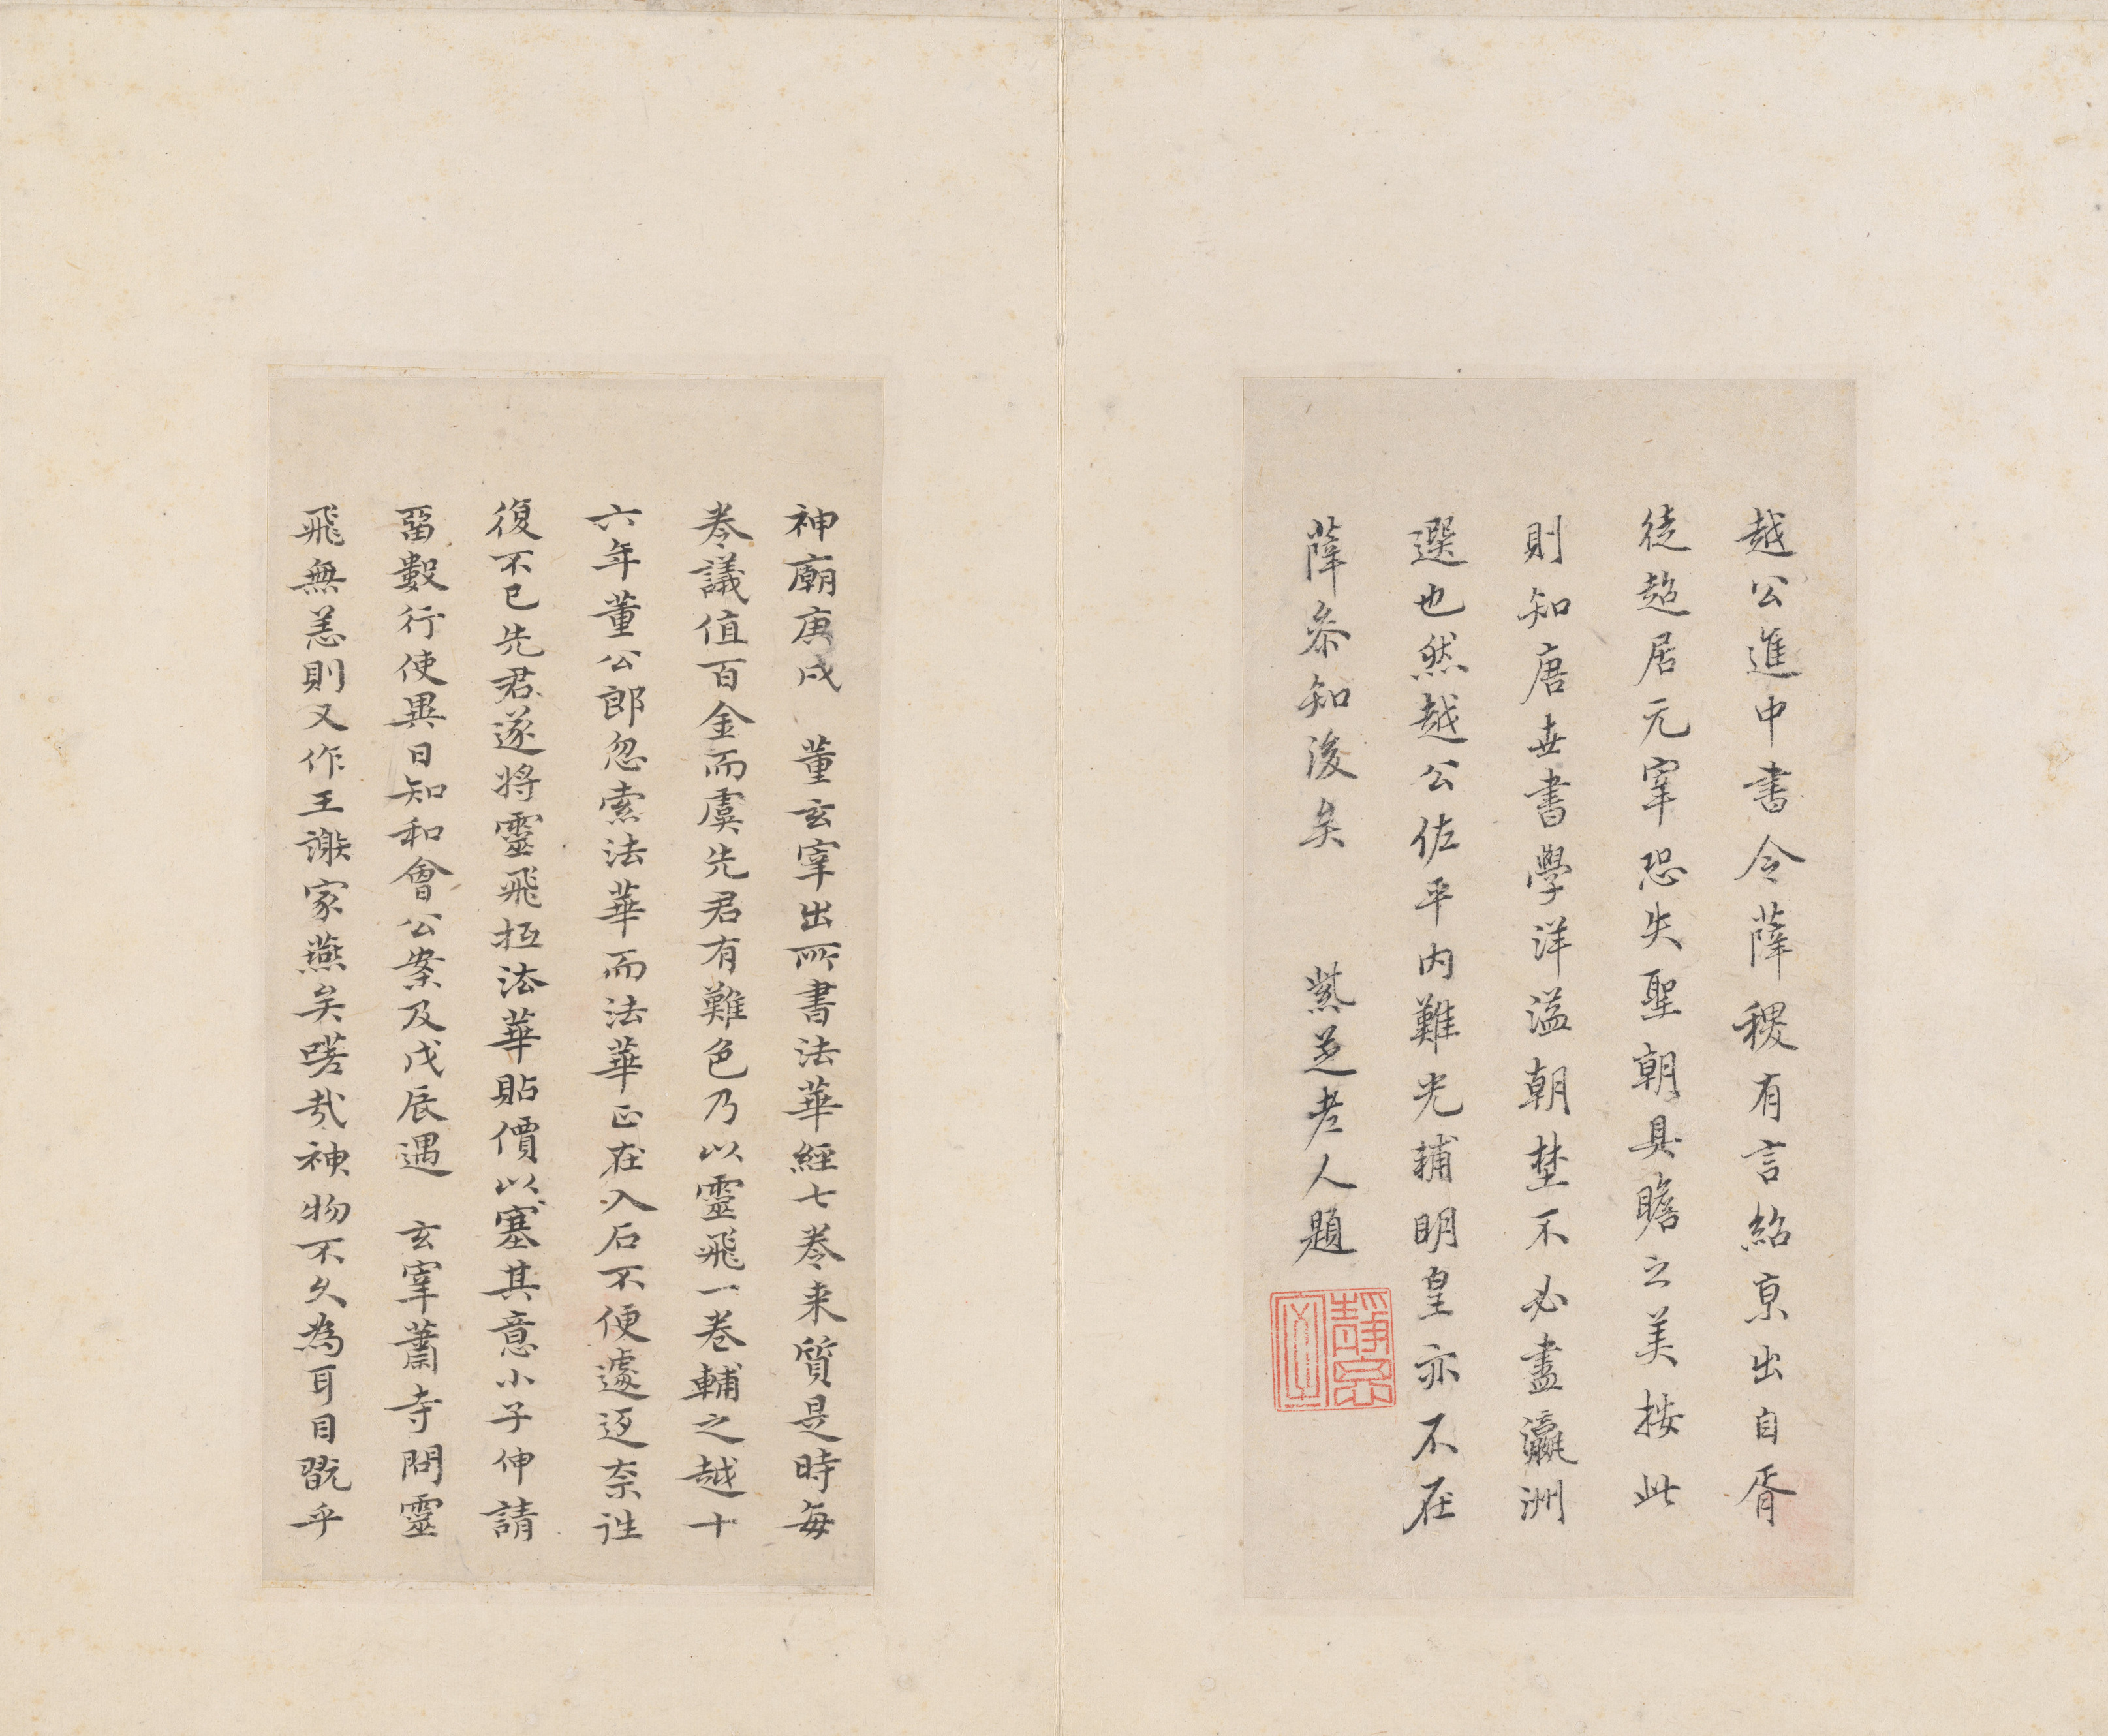 越公進中書令薛稷有言紹京出自胥
徒超居元宰恐失聖朝具瞻之美按此
則知唐世書學洋溢朝埜不必盡瀛洲
選也然越公佐平内難光輔明皇亦不在
薛叅知後矣　紫芝老人題
神廟庚戌　董玄宰出所書法華經七卷来質是時每
卷議值百金而虞先君有難色乃以靈飛一卷輔之越十
六年董公郎忽索法華而法華正在入石不便遽迓柰往
復不已先君遂將靈飛抵法華貼價以塞其意小子伸請
畱數行使異日知和會公案及戊辰遇　玄宰蕭寺問靈
飛無恙則又作王謝家燕矣嗟哉神物不久為耳目翫乎